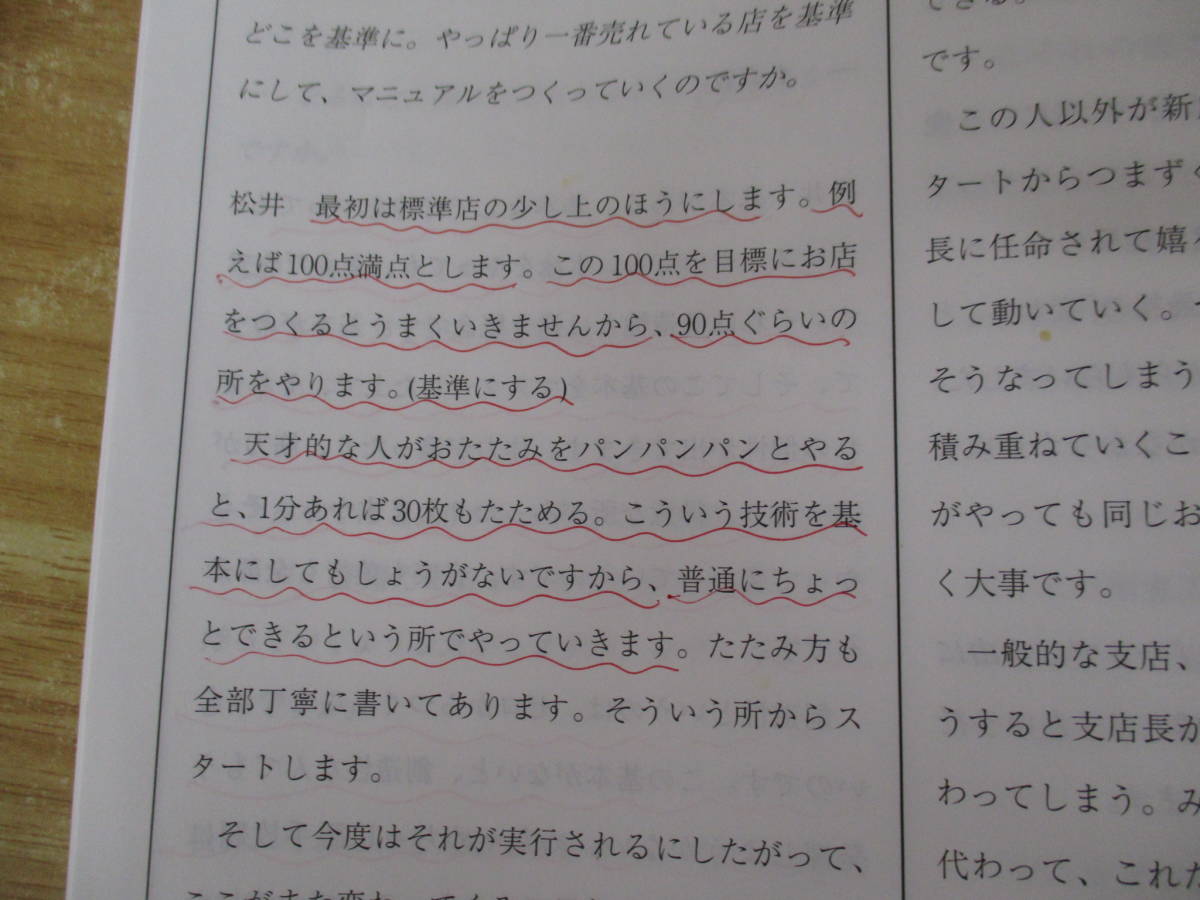 どこを基準に。やっぱり一番売れている店を基準
にして、マニュアルをつくっていくのですか。
松井　最初は標準店の少し上のほうにします。例
えば100点満点とします。この100点を目標にお店
をつくるとうまくいきませんから、90点ぐらいの
所をやります。(基準にする)
天才的な人がおたたみをパンパンパンとやる
と、1分あれば30枚もたためる。こういう技術を基
本にしてもしょうがないですから、普通にちょっ
とできるという所でやっていきます。たたみ方も
全部丁寧に書いてあります。そういう所からス
タートします。
そして今度はそれが実行されるにしたがって、
できる。
です。
この人以外が新
タートからつまずく
長に任命されて嬉
して動いていく。
そうなってしまう
積み重ねていくこ
がやっても同じお
く大事です。
一般的な支店、
うすると支店長が
わってしまう。み
代わって、これた